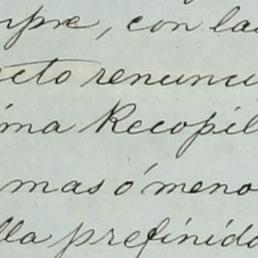 mpre, con la
ecto renunci
ima Recopil
mas ó meno
lla prefinido